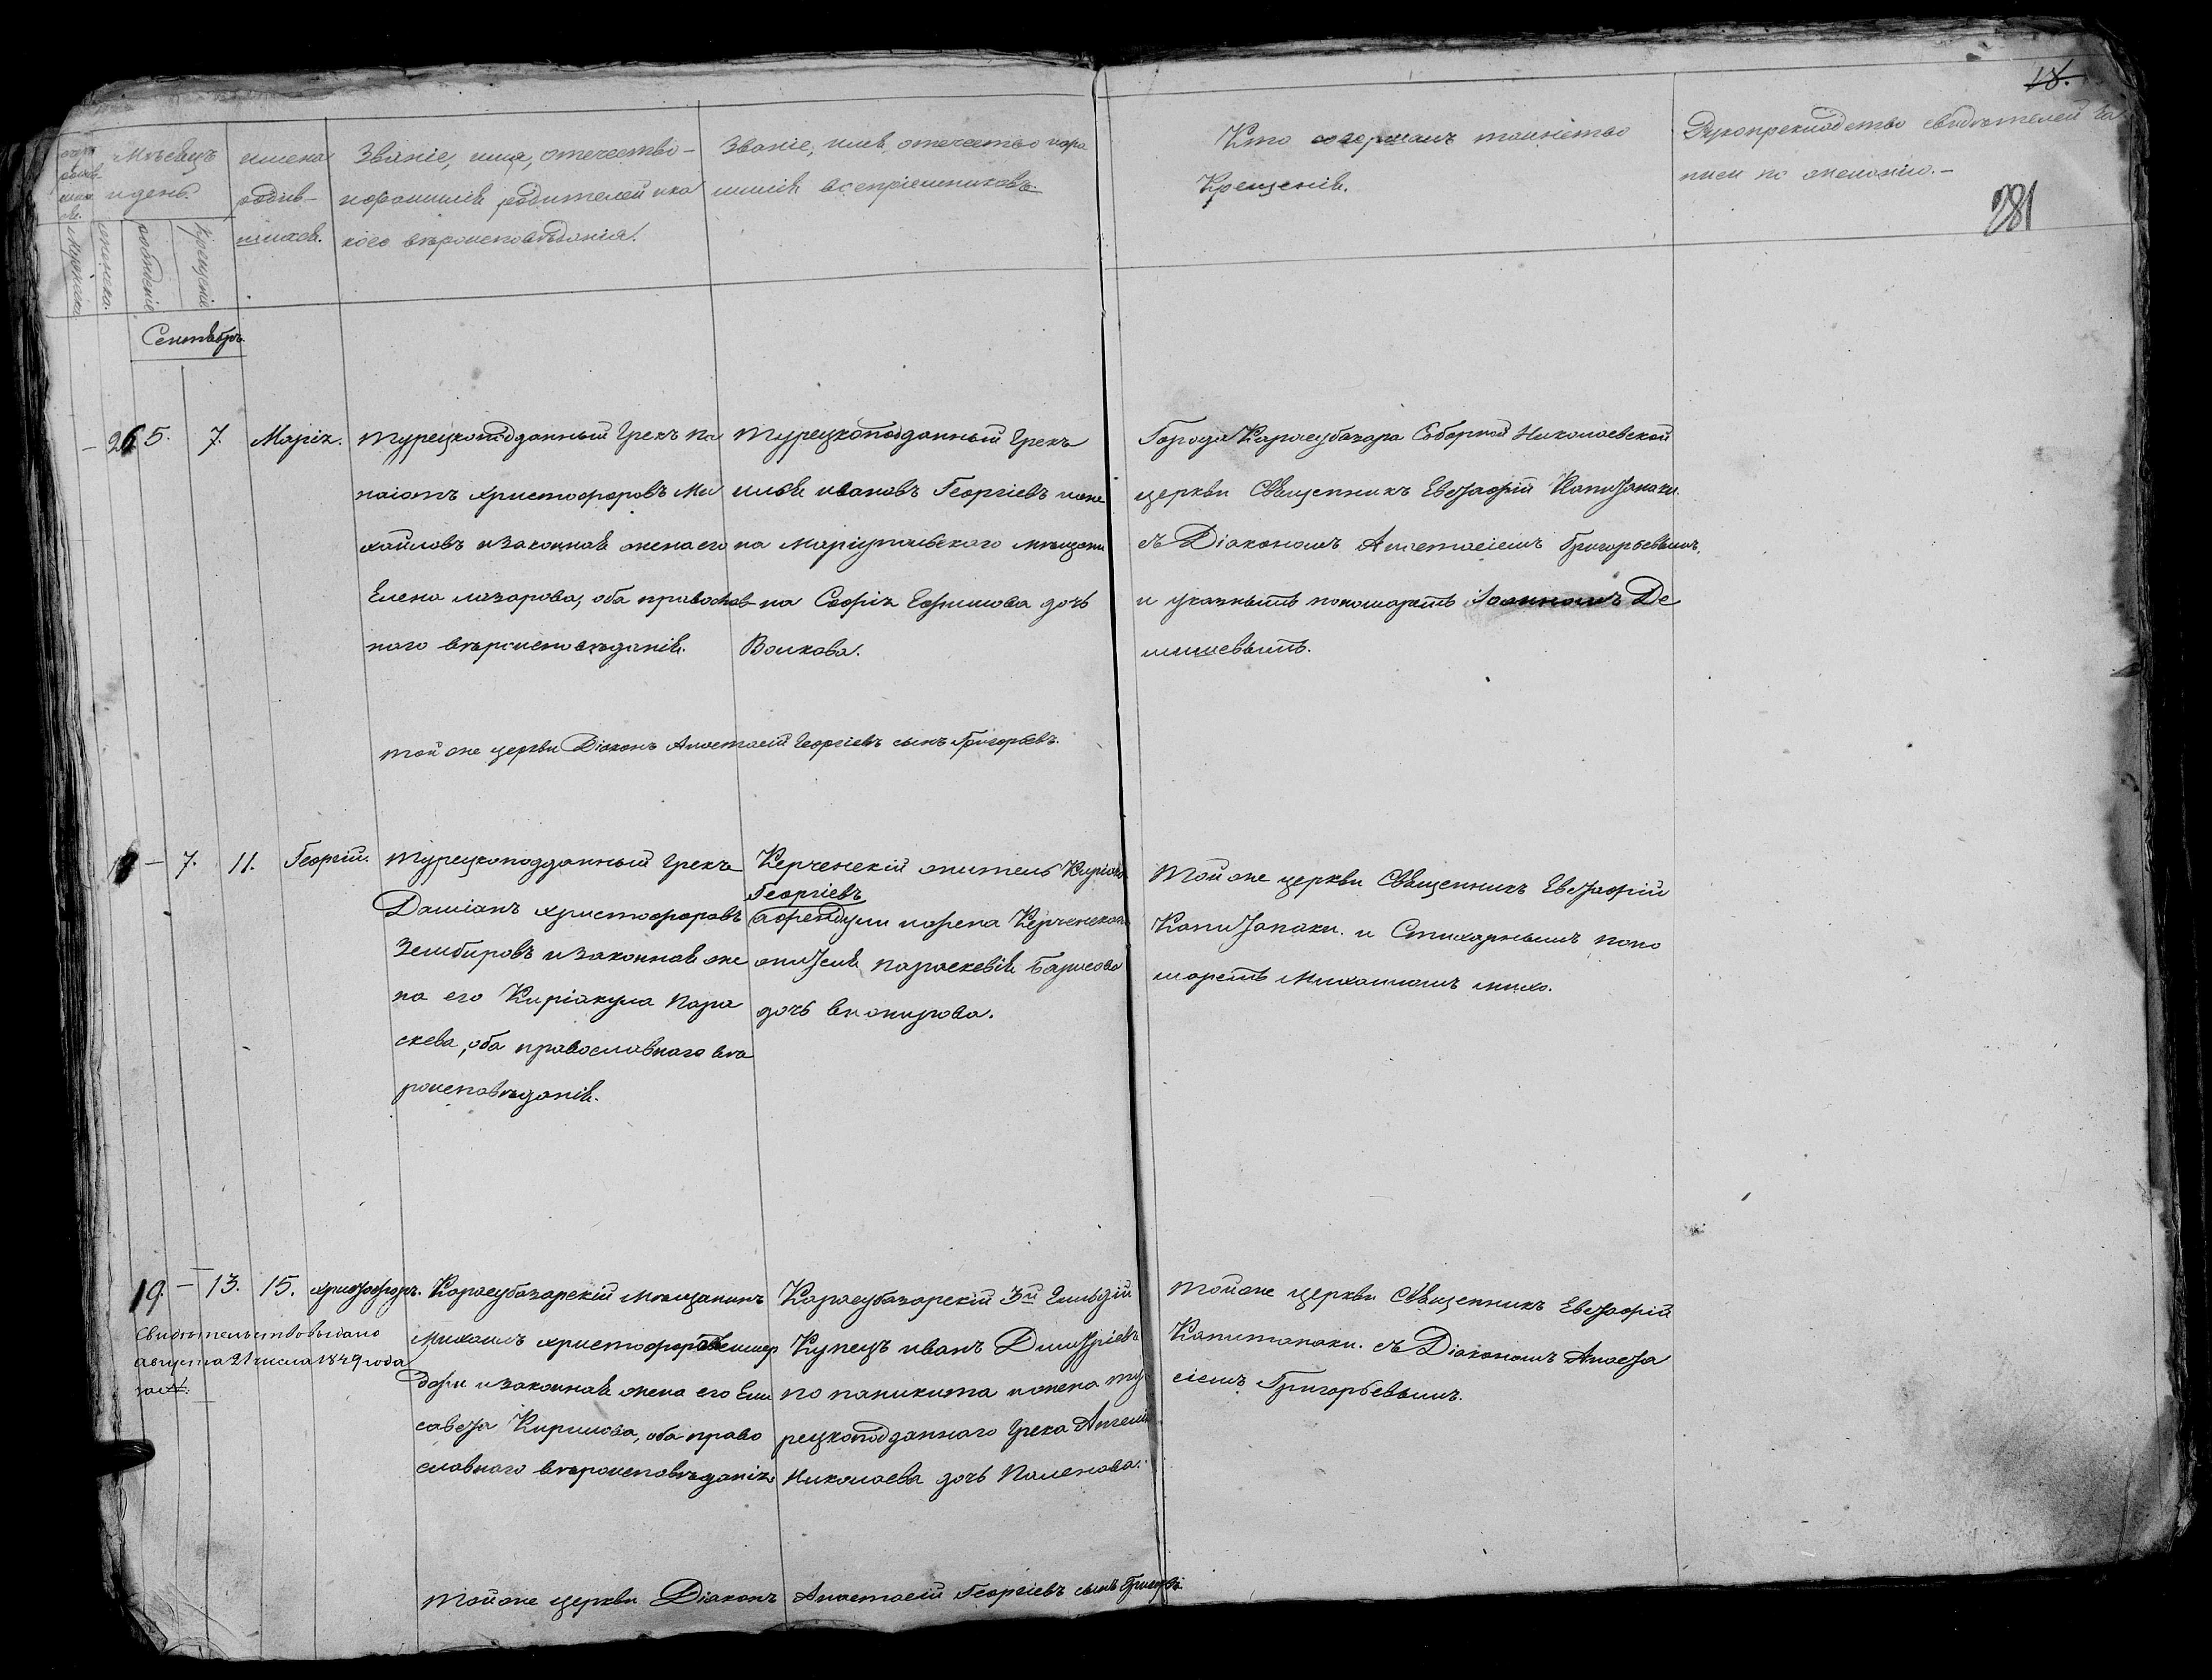 18.
281
Мѣсяцъ
и день.
имена
родив-
шихся.
Званіе, имя, отечество-
и фамилія родителей и ка
кого вѣроисповѣданія.
Званіе, имя, отечество и фа
милія воспріемниковъ
Кто совершалъ таинство
Крещенія.
Рукоприкладство свидѣтелей за
писи по желанію.-
Мужеска.
женска.
рожденія
крещенія
Сентябрь.
- 26 5. 7. Марія.
Турецкоподданный Грекъ Па
наіотъ Христофоровъ Ми
хайловъ и законная жена его
Елена Лазарова, оба православ
наго вѣроисповѣданія.
Турецкоподданный Грекъ
Илья Ивановъ Георгіевъ и же
на Маріупольскаго мѣщани
на Софія Ефимова дочь
Волкова.
Города Карасубазара Соборной Николаевской
церкви Священникъ Евстафій Капитанаки
съ Діакономъ Анастасіемъ Григорьевымъ,
и указнымъ пономаремъ Іоанномъ Де
мишевымъ.
Той же церкви Діаконъ Анастасій Георгіевъ сынъ Григорьевъ.
- 7. 11. Георгій.
Турецкоподданный Грекъ
Даміанъ Христофоровъ
Зембировъ и законная же
на его Киріакула Пара
скева, оба православнаго вѣ
роисповѣданія.
Керченскій житель
Георгіевъ
Афендули и жена Керченскаго
жителя Параскевія Борисова
дочь
Той же церкви Священникъ Евстафій
Капитанаки. и Стихарнымъ поно
маремъ Михаиломъ
19. - 13. 15. Христофоръ.
Свидѣтельство выдано
августа 21 числа 1849 года
за №.
Карасубазарскій мѣщанинъ
Михаилъ Христофоровъ
и законная жена его Ели
савета Кирилова, оба право
славнаго вѣроисповѣданія
Карасубазарскій 3й Гильдіи
Купецъ Иванъ Димитріевъ
Папаникита и жена Ту
рецкоподданнаго Грека
Николаева дочь
Той же церкви Священникъ Евстафій
Капитанаки. съ Діакономъ Анаста
сіемъ Григорьевымъ.
Той же церкви Діаконъ Анастасій Георгіевъ сынъ Григорьевъ